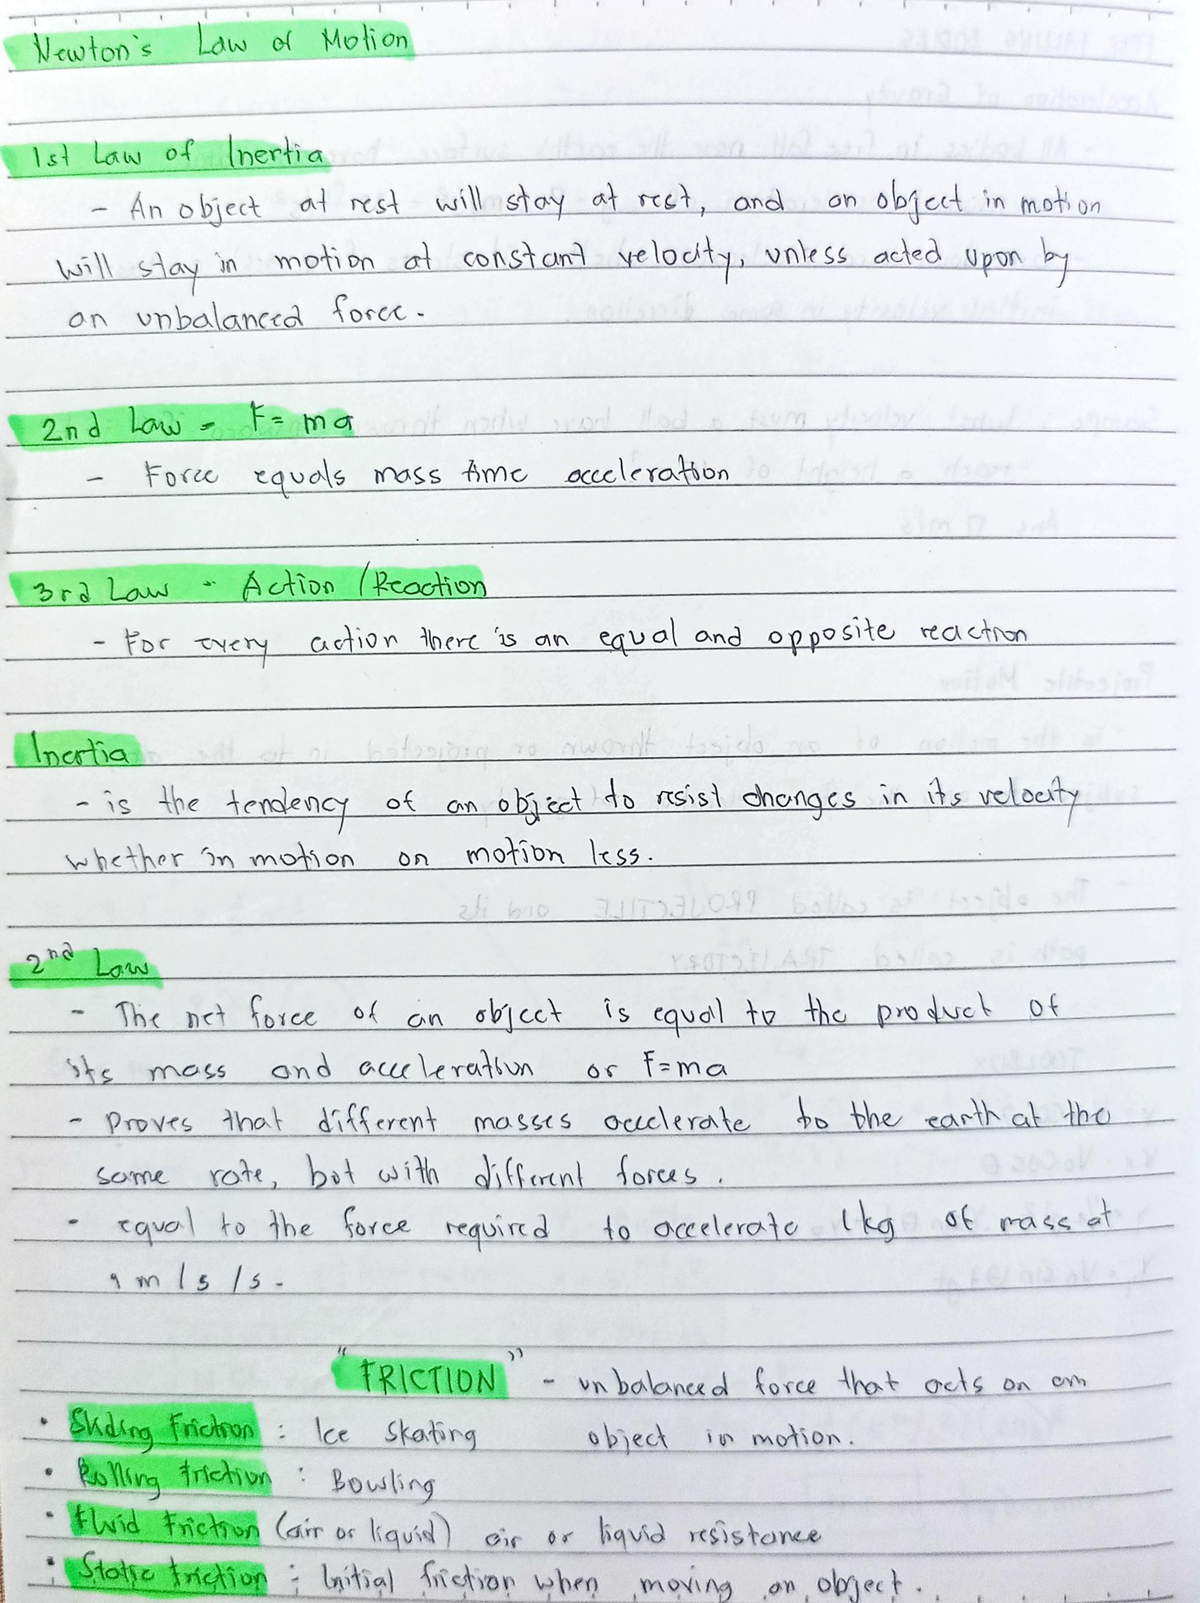 Newton's Law of Motion
1st Law of Inertia
- An object at rest will stay at rest, and an object in motion
will stay in motion at constant velocity, unless acted upon by
an unbalanced force.
2nd Law - F = ma
- Force equals mass time acceleration
3rd Law - Action / Reaction
- For every action there is an equal and opposite reaction
Inertia
- is the tendency of an object to resist changes in its velocity
whether in motion or motion less.
2nd Law
- The net force of an object is equal to the product of
its mass and acceleration or F=ma
- Proves that different masses accelerate to the earth at the
same rate, but with different forces.
- equal to the force required to accelerate 1kg of mass at
1 m/s/s.
"FRICTION" - unbalanced force that acts on an
• Sliding Friction : Ice Skating object in motion.
• Rolling friction : Bowling
• Fluid Friction (air or liquid) air or liquid resistance
• Static friction : Initial friction when moving an object.